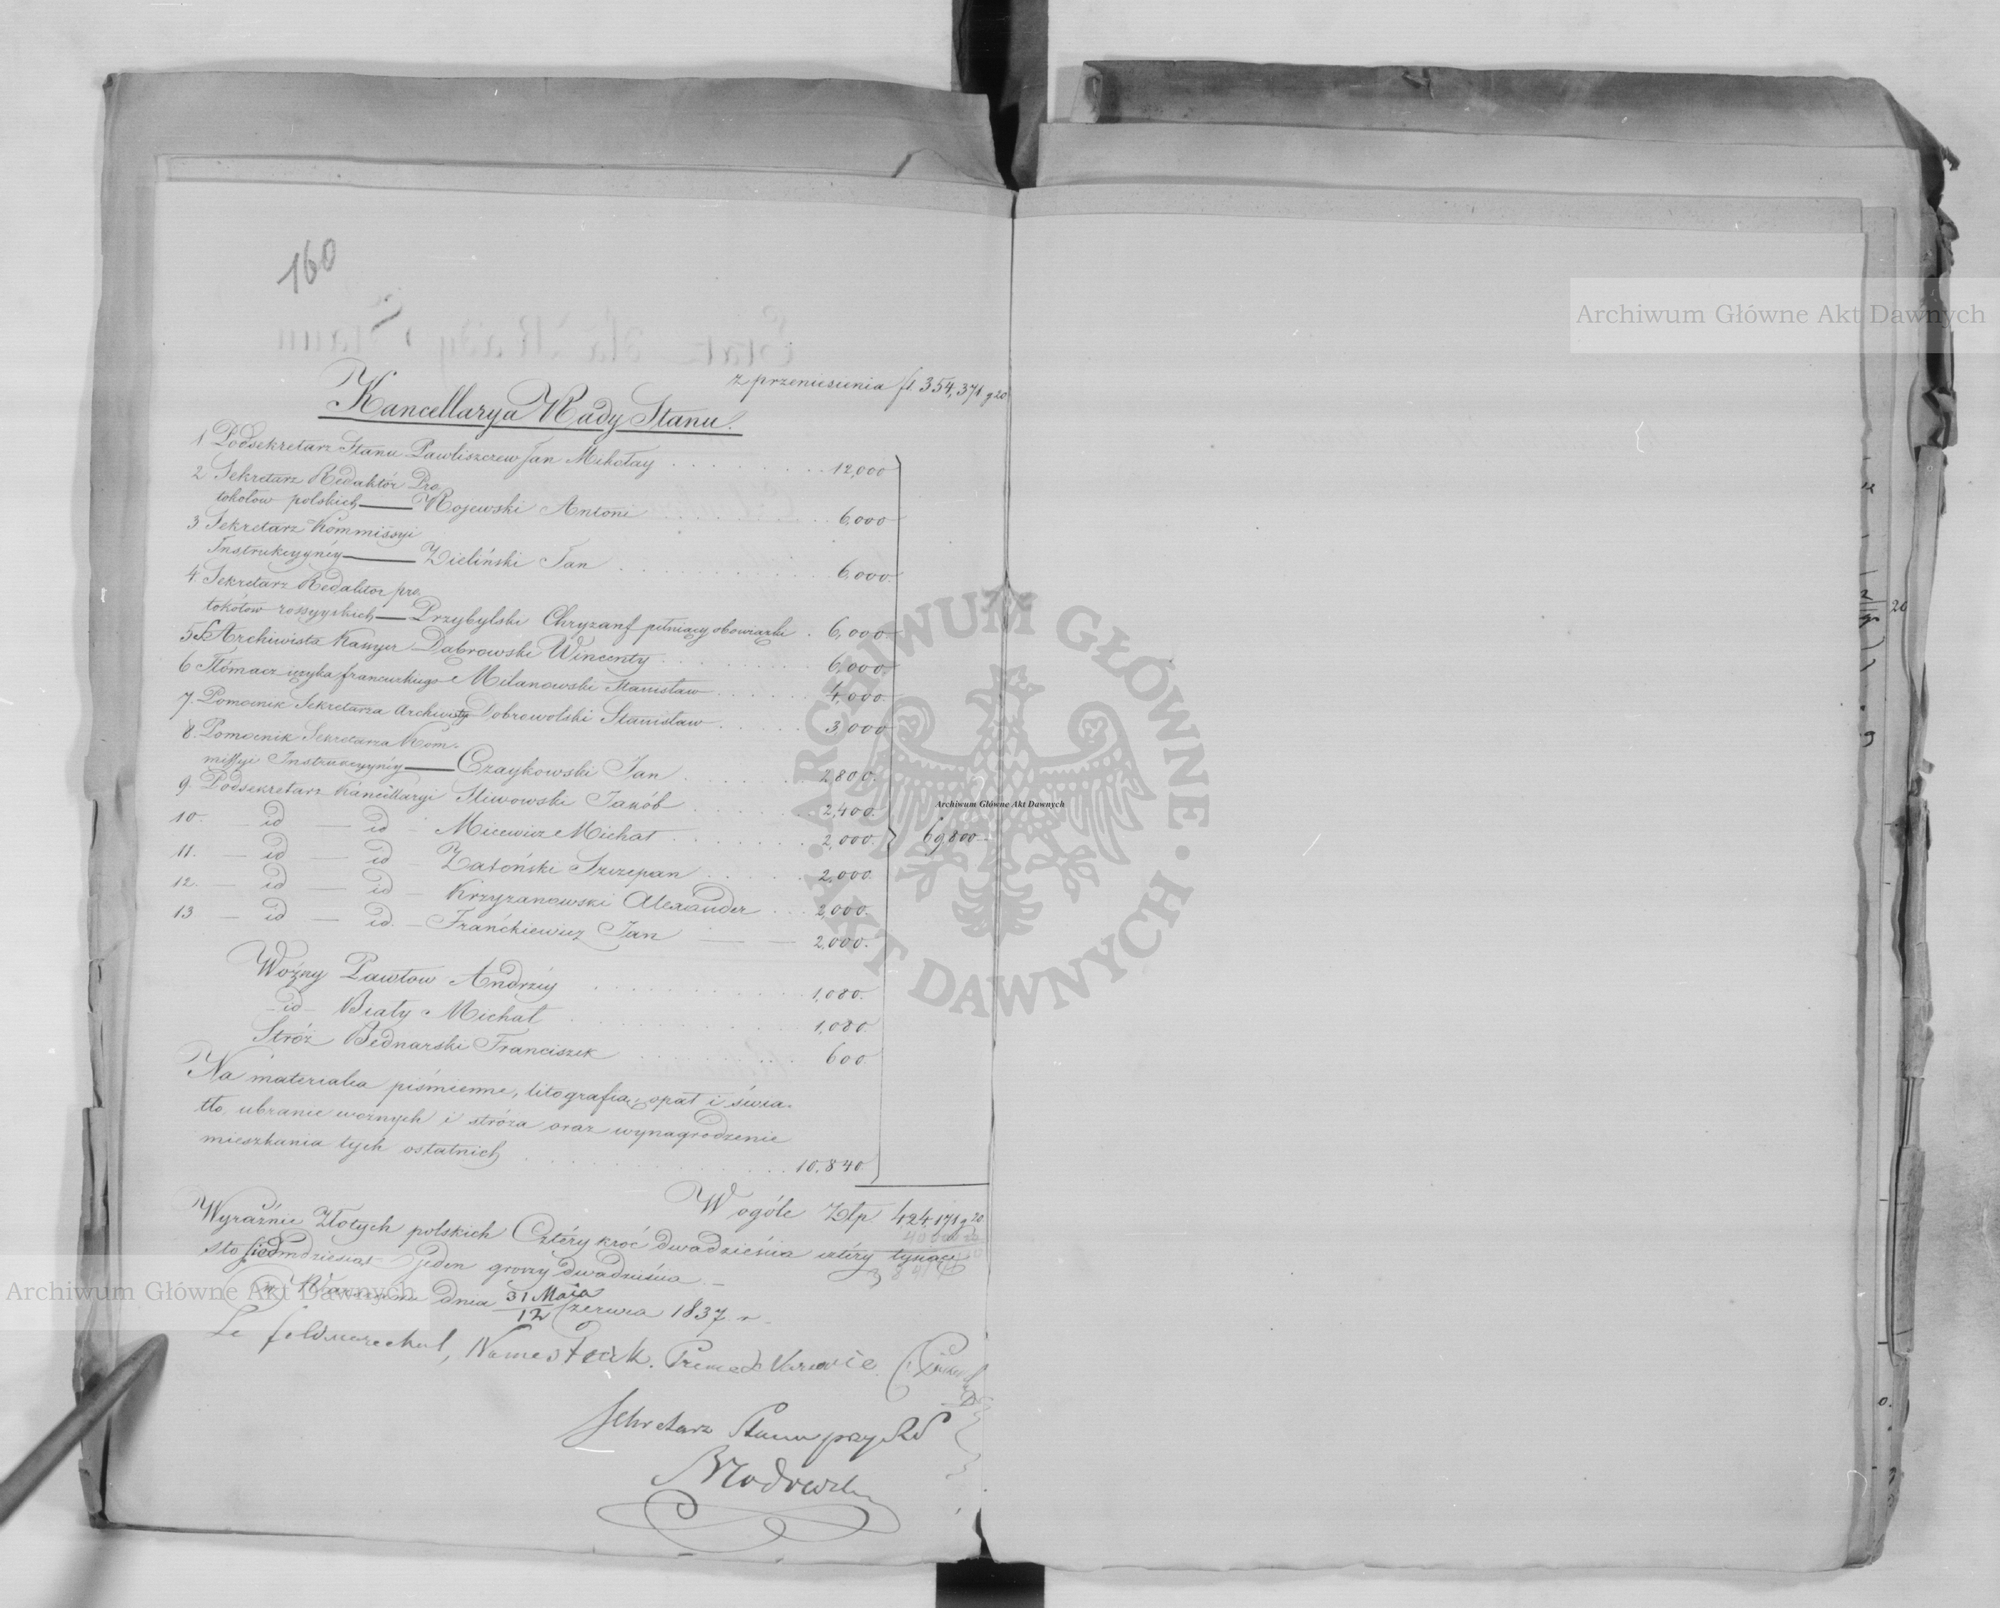 160
z przeniesienia fl 354,371 g 20
Kancellarya Rady Stanu.
1 Podsekretarz Stanu Pawliszczew Jan Mikołay 12,000
2 Sekretarz Redaktór Pro
tokołow polskich — Rojewski Antoni 6,000
3 Sekretarz Kommissyi
Instrukcyynéy — Zieliński Jan 6,000.
4 Sekretarz Redaktor pro
tokółow rossyyskich — Przybylski Chryzanf pełniący obowiązki 6,000
5 Archiwista Kassyer Dąbrowski Wincenty 6,000
6 Tłómacz ięzyka francuzkiego Milanowski Stanisław 4,000.
7. Pomocnik Sekretarza Archiwisty Dobrowolski Stanisław 3,000
8. Pomocnik Sekretarza Kom-
missyi Instrukcyynéy — Czaykowski Jan 2,800.
9. Podsekretarz Kancellaryi Sliwowski Jakób 2,400.
10. — id — id — Micewicz Michał 2,000. 69,800
11. — id — id — Zatoński Szczepan 2,000.
12. — id — id — Krzyzanowski Alexander 2,000.
13 — id — id. — Frańckiewicz Jan 2,000.
Woźny Pawłow Andrzéy 1,080.
— id — Biały Michał 1,080.
Stróż Bednarski Franciszek 600.
Na materialia piśmienne, litografią, opał i świa-
tło, ubranie woźnych i stróża oraz wynagrodzenie
mieszkania tych ostatnich 10,840.
W ogóle Złp. 424,171 g 20
Wyraźnie Złotych polskich Cztéry kroć dwadzieścia cztéry tysiące
sto siedmdziesiąt jeden groszy dwadzieścia. —
w Warszawie dnia 31 Maia / 12 Czerwca 1837 r.
Le feldmarechal,
Sekretarz Stanu przy
Archiwum Główne Akt Dawnych
Archiwum Główne Akt Dawnych
Archiwum Główne Akt Dawnych
ARCHIWUM GŁÓWNE · AKT DAWNYCH ·
20